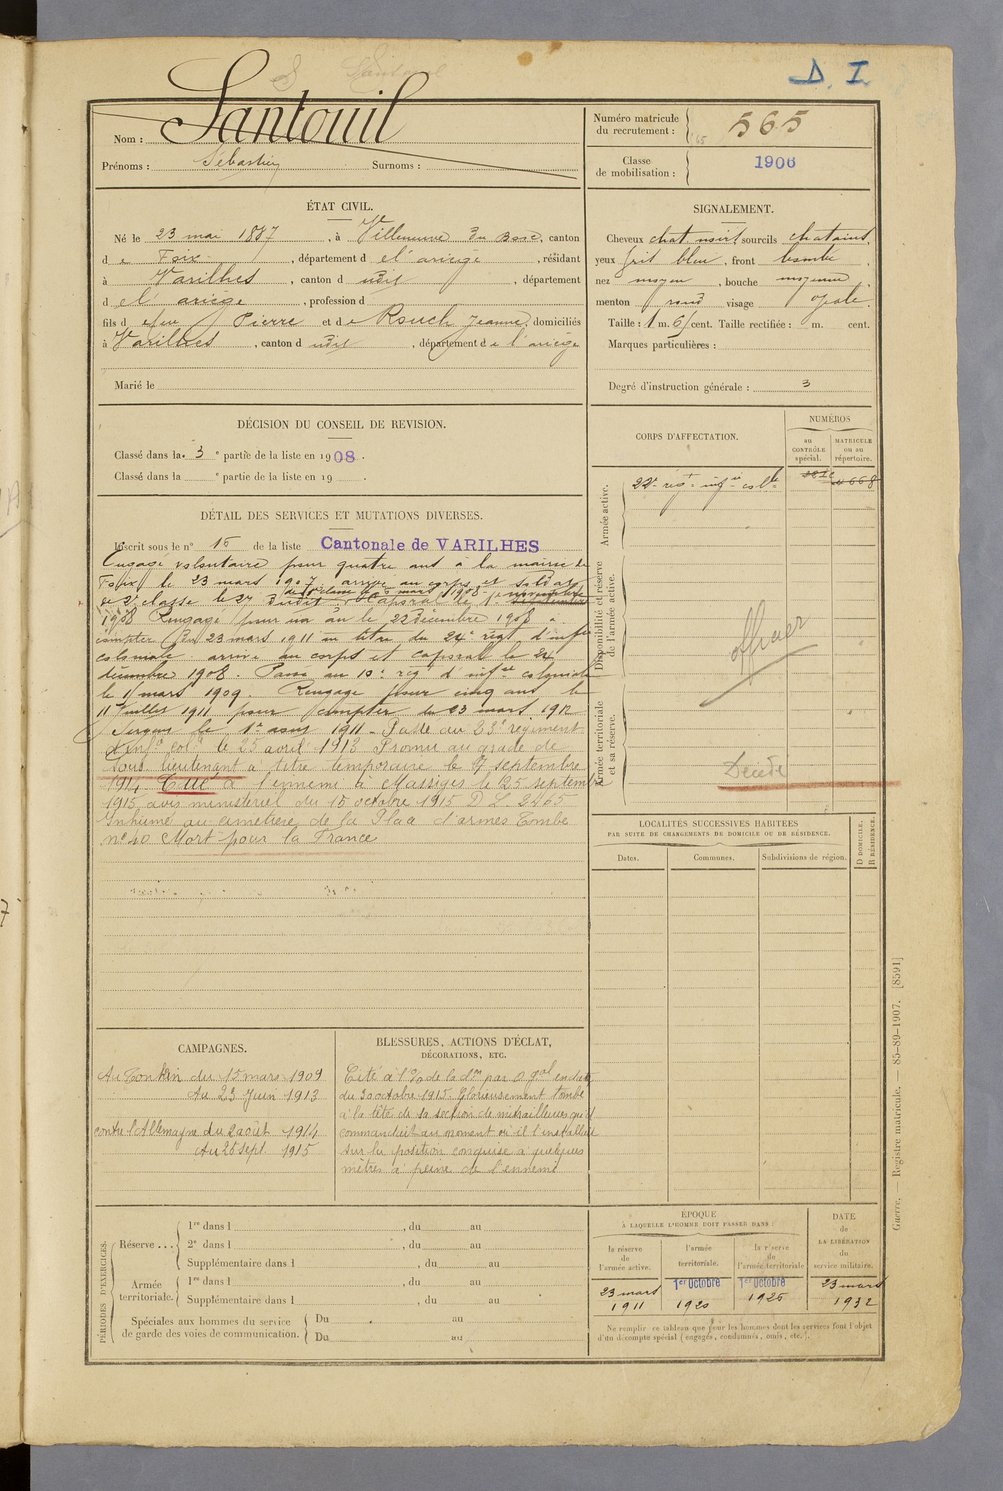 D. I.
Santouil
Nom :
Prénoms : Sébastien Surnoms :
Numéro matricule du recrutement : 565
Classe de mobilisation : 1906
ÉTAT CIVIL.
Né le 23 mai 1887, à Villeneuve du Bosc, canton
de Foix, département de l'ariège, résidant
à Varilhes, canton d udit, département
de l'ariège, profession d
fils de feu Pierre et de Rouch Jeanne, domiciliés
à Varilhes, canton d udit, département de l'ariège
Marié le
SIGNALEMENT.
Cheveux chat. noirs sourcils chatains,
yeux gris bleu, front bombé
nez moyen, bouche moyenne
menton rond visage ovale.
Taille : 1 m. 61 cent. Taille rectifiée : m. cent.
Marques particulières :
Degré d'instruction générale : 3
DÉCISION DU CONSEIL DE REVISION.
Classé dans la 3e partie de la liste en 1908.
Classé dans la e partie de la liste en 19 .
CORPS D'AFFECTATION.
NUMÉROS
au CONTRÔLE spécial.
MATRICULE ou au répertoire.
Armée active.
22e régt infie colle
Disponibilité et réserve de l'armée active.
officier
Armée territoriale et sa réserve.
Décédé
DÉTAIL DES SERVICES ET MUTATIONS DIVERSES.
Inscrit sous le n° 16 de la liste Cantonale de VARILHES
Engagé volontaire pour quatre ans à la mairie de
Foix le 23 mars 1907, arrivé au corps et soldat
de 2e classe le 27 dudit, de 1e classe le 6 mars 1908. Caporal le 1er septembre novembre
1908 Rengagé pour un an le 22 décembre 1908 à
compter du 23 mars 1911 au titre du 24e régt d'infie
coloniale. arrivé au corps et caporal le 24
décembre 1908. Passé au 10e régt d'infie coloniale
le 1 mars 1909. Rengagé pour cinq ans le
11 Juillet 1911 pour compter du 23 mars 1912
Sergent le 1er aout 1911 - Passé au 23e régiment
d'infie colle le 25 avril 1913 Promu au grade de
sous lieutenant à titre temporaire le 7 septembre
1914. Tué à l'ennemi à Massiges le 25 septembre
1915, avis ministériel du 15 octobre 1915 D.L. 2465
Inhumé au cimetière de la Place d'armes Tombe
n° 40 Mort pour la France
LOCALITÉS SUCCESSIVES HABITÉES
PAR SUITE DE CHANGEMENTS DE DOMICILE OU DE RÉSIDENCE.
Dates.
Communes.
Subdivisions de région.
D DOMICILE. R RÉSIDENCE.
CAMPAGNES.
Au Tonkin du 15 mars 1909
Au 23 Juin 1913
contre l'Allemagne du 2 août 1914
Au 25 sept. 1915
BLESSURES, ACTIONS D'ÉCLAT,
DÉCORATIONS, ETC.
Cité à l'% de la don par O gal en date
du 30 octobre 1915. Glorieusement tombé
à la tête de sa section de mitrailleuses qu'il
commandait au moment où il l'installait
sur la position conquise à quelques
mètres à peine de l'ennemi
PÉRIODES D'EXERCICES.
Réserve ...
1re dans l , du au
2e dans l , du au
Supplémentaire dans l , du au
Armée territoriale.
1re dans l , du au
Supplémentaire dans l , du au
Spéciales aux hommes du service
de garde des voies de communication.
Du au
Du au
ÉPOQUE
À LAQUELLE L'HOMME DOIT PASSER DANS :
la réserve de l'armée active.
l'armée territoriale.
la réserve de l'armée territoriale
DATE de LA LIBÉRATION du service militaire.
23 mars 1911
1er Octobre 1920
1er Octobre 1926
23 mars 1932
Ne remplir ce tableau que pour les hommes dont les services font l'objet
d'un décompte spécial (engagés, condamnés, omis, etc.).
Guerre. — Registre matricule. — 85-89-1907. [8591]